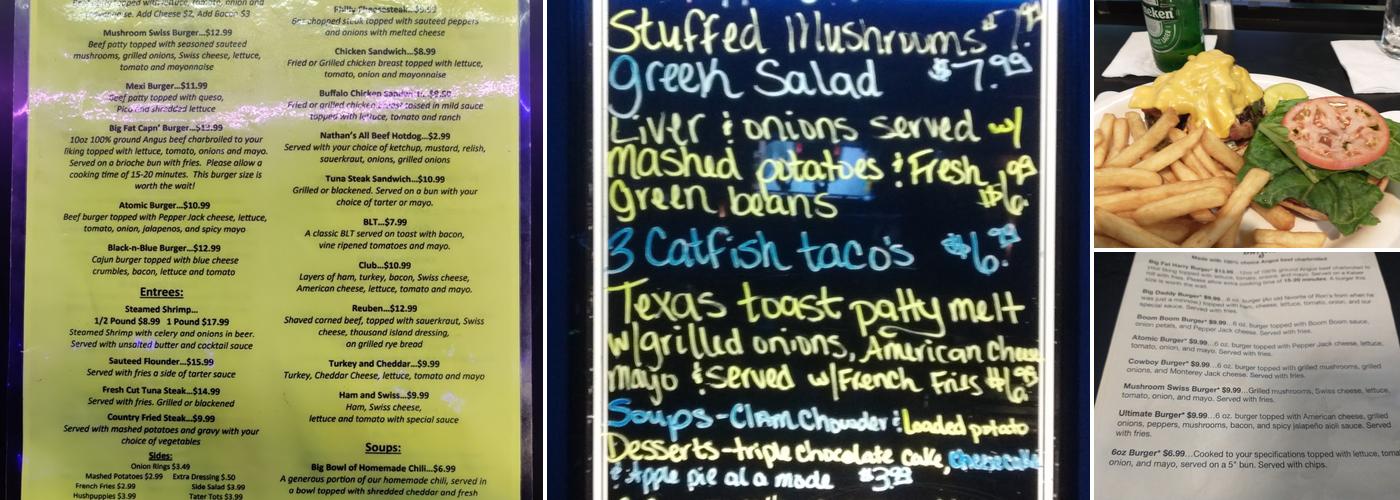 Beef patty topped with lettuce, tomato, onion and
Add Cheese $2, Add Bacon $3
Mushroom Swiss Burger...$12.99
Beef patty topped with seasoned sauteed
mushrooms, grilled onions, Swiss cheese, lettuce,
tomato and mayonnaise
Mexi Burger...$11.99
Beef patty topped with queso,
Pico and shredded lettuce
Big Fat Capn' Burger...$13.99
10oz 100% ground Angus beef charbroiled to your
liking topped with lettuce, tomato, onions and mayo.
Served on a brioche bun with fries. Please allow a
cooking time of 15-20 minutes. This burger size is
worth the wait!
Atomic Burger...$10.99
Beef burger topped with Pepper Jack cheese, lettuce,
tomato, onion, jalapenos, and spicy mayo
Black-n-Blue Burger...$12.99
Cajun burger topped with blue cheese
crumbles, bacon, lettuce and tomato
Entrees:
Steamed Shrimp...
1/2 Pound $8.99 1 Pound $17.99
Steamed Shrimp with celery and onions in beer.
Served with unsalted butter and cocktail sauce
Sauteed Flounder...$15.99
Served with fries a side of tarter sauce
Fresh Cut Tuna Steak...$14.99
Served with fries. Grilled or blackened
Country Fried Steak...$9.99
Served with mashed potatoes and gravy with your
choice of vegetables
Sides:
Onion Rings $3.49
Mashed Potatoes $2.99 Extra Dressing $.50
French Fries $2.99 Side Salad $3.99
Hushpuppies $3.99 Tater Tots $3.99
Philly Cheesesteak...$9.99
6oz chopped steak topped with sauteed peppers
and onions with melted cheese
Chicken Sandwich...$8.99
Fried or Grilled chicken breast topped with lettuce,
tomato, onion and mayonnaise
Buffalo Chicken Sandwich...$9.50
Fried or grilled chicken breast tossed in mild sauce
topped with lettuce, tomato and ranch
Nathan's All Beef Hotdog...$2.99
Served with your choice of ketchup, mustard, relish,
sauerkraut, onions, grilled onions
Tuna Steak Sandwich...$10.99
Grilled or blackened. Served on a bun with your
choice of tarter or mayo.
BLT...$7.99
A classic BLT served on toast with bacon,
vine ripened tomatoes and mayo.
Club...$10.99
Layers of ham, turkey, bacon, Swiss cheese,
American cheese, lettuce, tomato and mayo.
Reuben...$12.99
Shaved corned beef, topped with sauerkraut, Swiss
cheese, thousand island dressing,
on grilled rye bread
Turkey and Cheddar...$9.99
Turkey, Cheddar Cheese, lettuce, tomato and mayo
Ham and Swiss...$9.99
Ham, Swiss cheese,
lettuce and tomato with special sauce
Soups:
Big Bowl of Homemade Chili...$6.99
A generous portion of our homemade chili, served in
a bowl topped with shredded cheddar and fresh
Stuffed Mushrooms $7.99
Green Salad $7.99
Liver & onions served w/
Mashed potatoes & Fresh
green beans $6.99
3 Catfish taco's $6.99
Texas toast patty melt
w/grilled onions, American Chee
Mayo & served w/French Fries $6.95
Soups-Clam Chowder & Loaded potato
Desserts-triple chocolate cake, cheesecake
& Apple pie al a mode $3.99
Made with 100% choice Angus beef charbroiled
Big Fat Harry Burger* $13.99...12oz of 100% ground Angus beef charbroiled to
your liking topped with lettuce, tomato, onions, and mayo. Served on a Kaiser
roll with fries. Please allow extra cooking time of 15-20 minutes. A burger this
size is worth the wait.
Big Daddy Burger* $9.99...6 oz. burger (An old favorite of Ron's from when he
was just a minnow) topped with ham, cheese, lettuce, tomato, onion, and our
special sauce. Served with fries.
Boom Boom Burger* $9.99...6 oz. burger topped with Boom Boom sauce,
onion petals, and Pepper Jack cheese. Served with fries.
Atomic Burger* $9.99...6 oz. burger topped with Pepper Jack cheese, lettuce,
tomato, onion, and mayo. Served with fries.
Cowboy Burger* $9.99...6 oz. burger topped with grilled mushrooms, grilled
onions, and Monterey Jack cheese. Served with fries.
Mushroom Swiss Burger* $9.99...Grilled mushrooms, Swiss cheese, lettuce,
tomato, onion, and mayo. Served with fries.
Ultimate Burger* $9.99...6 oz. burger topped with American cheese, grilled
onions, peppers, mushrooms, bacon, and spicy jalapeño aioli sauce. Served
with fries.
6oz Burger* $6.99...Cooked to your specifications topped with lettuce, toma
onion, and mayo, served on a 5" bun. Served with chips.